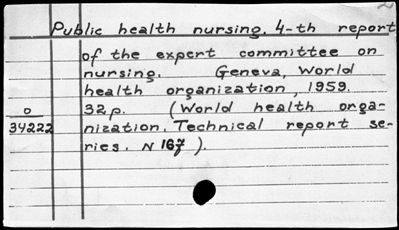 Public health nursing. 4-th report
of the expert committee on
nursing. Geneva, World
health organization, 1959.
32p. (World health orga-
nization. Technical report se-
ries. N 167).
0
34222